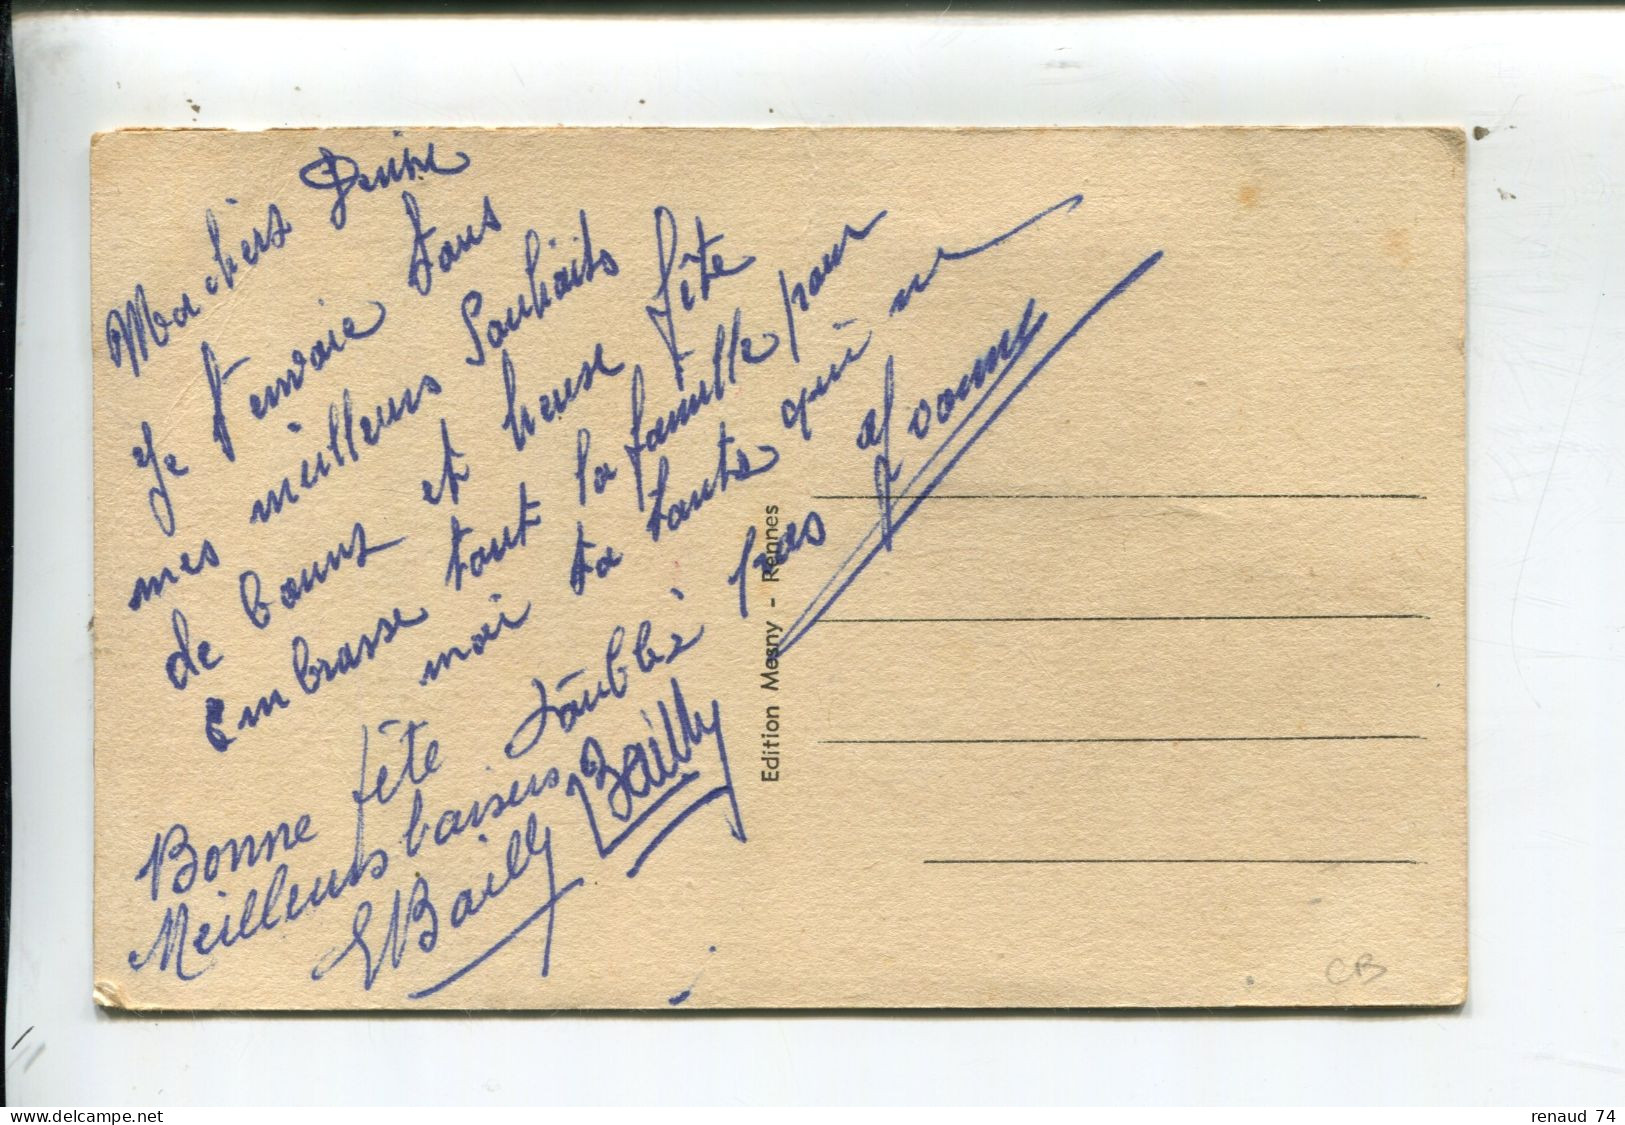 Ma chère Denise
Je t'envoie tous
mes meilleurs Souhaits
de bonne et heureuse fête
Embrasse tout la famille pour
moi ta tante qui ne
t'oublie pas Yvonne
Bonne fête
Meilleurs baisers
Bailly
Bailly
Edition Mesny - Rennes
CB
www.delcampe.net
renaud 74